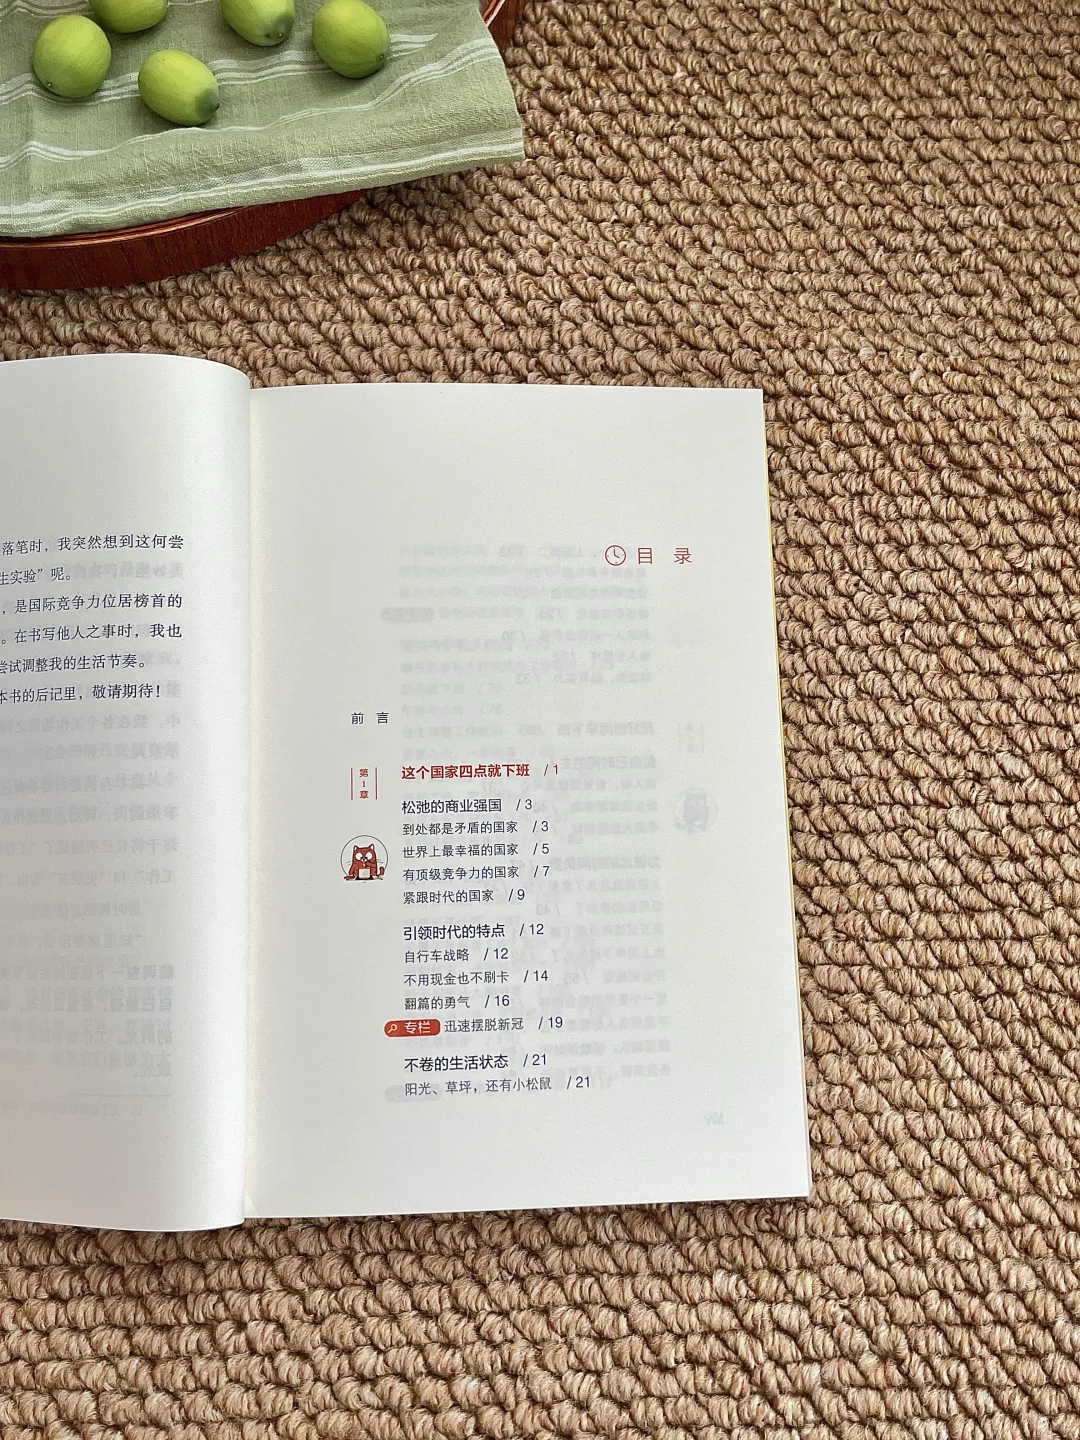 落笔时，我突然想到这何尝
生实验”呢。
，是国际竞争力位居榜首的
。在书写他人之事时，我也
尝试调整我的生活节奏。
本书的后记里，敬请期待！
目 录
前 言
第1章
这个国家四点就下班 / 1
松弛的商业强国 / 3
到处都是矛盾的国家 / 3
世界上最幸福的国家 / 5
有顶级竞争力的国家 / 7
紧跟时代的国家 / 9
引领时代的特点 / 12
自行车战略 / 12
不用现金也不刷卡 / 14
翻篇的勇气 / 16
专栏 迅速摆脱新冠 / 19
不卷的生活状态 / 21
阳光、草坪，还有小松鼠 / 21